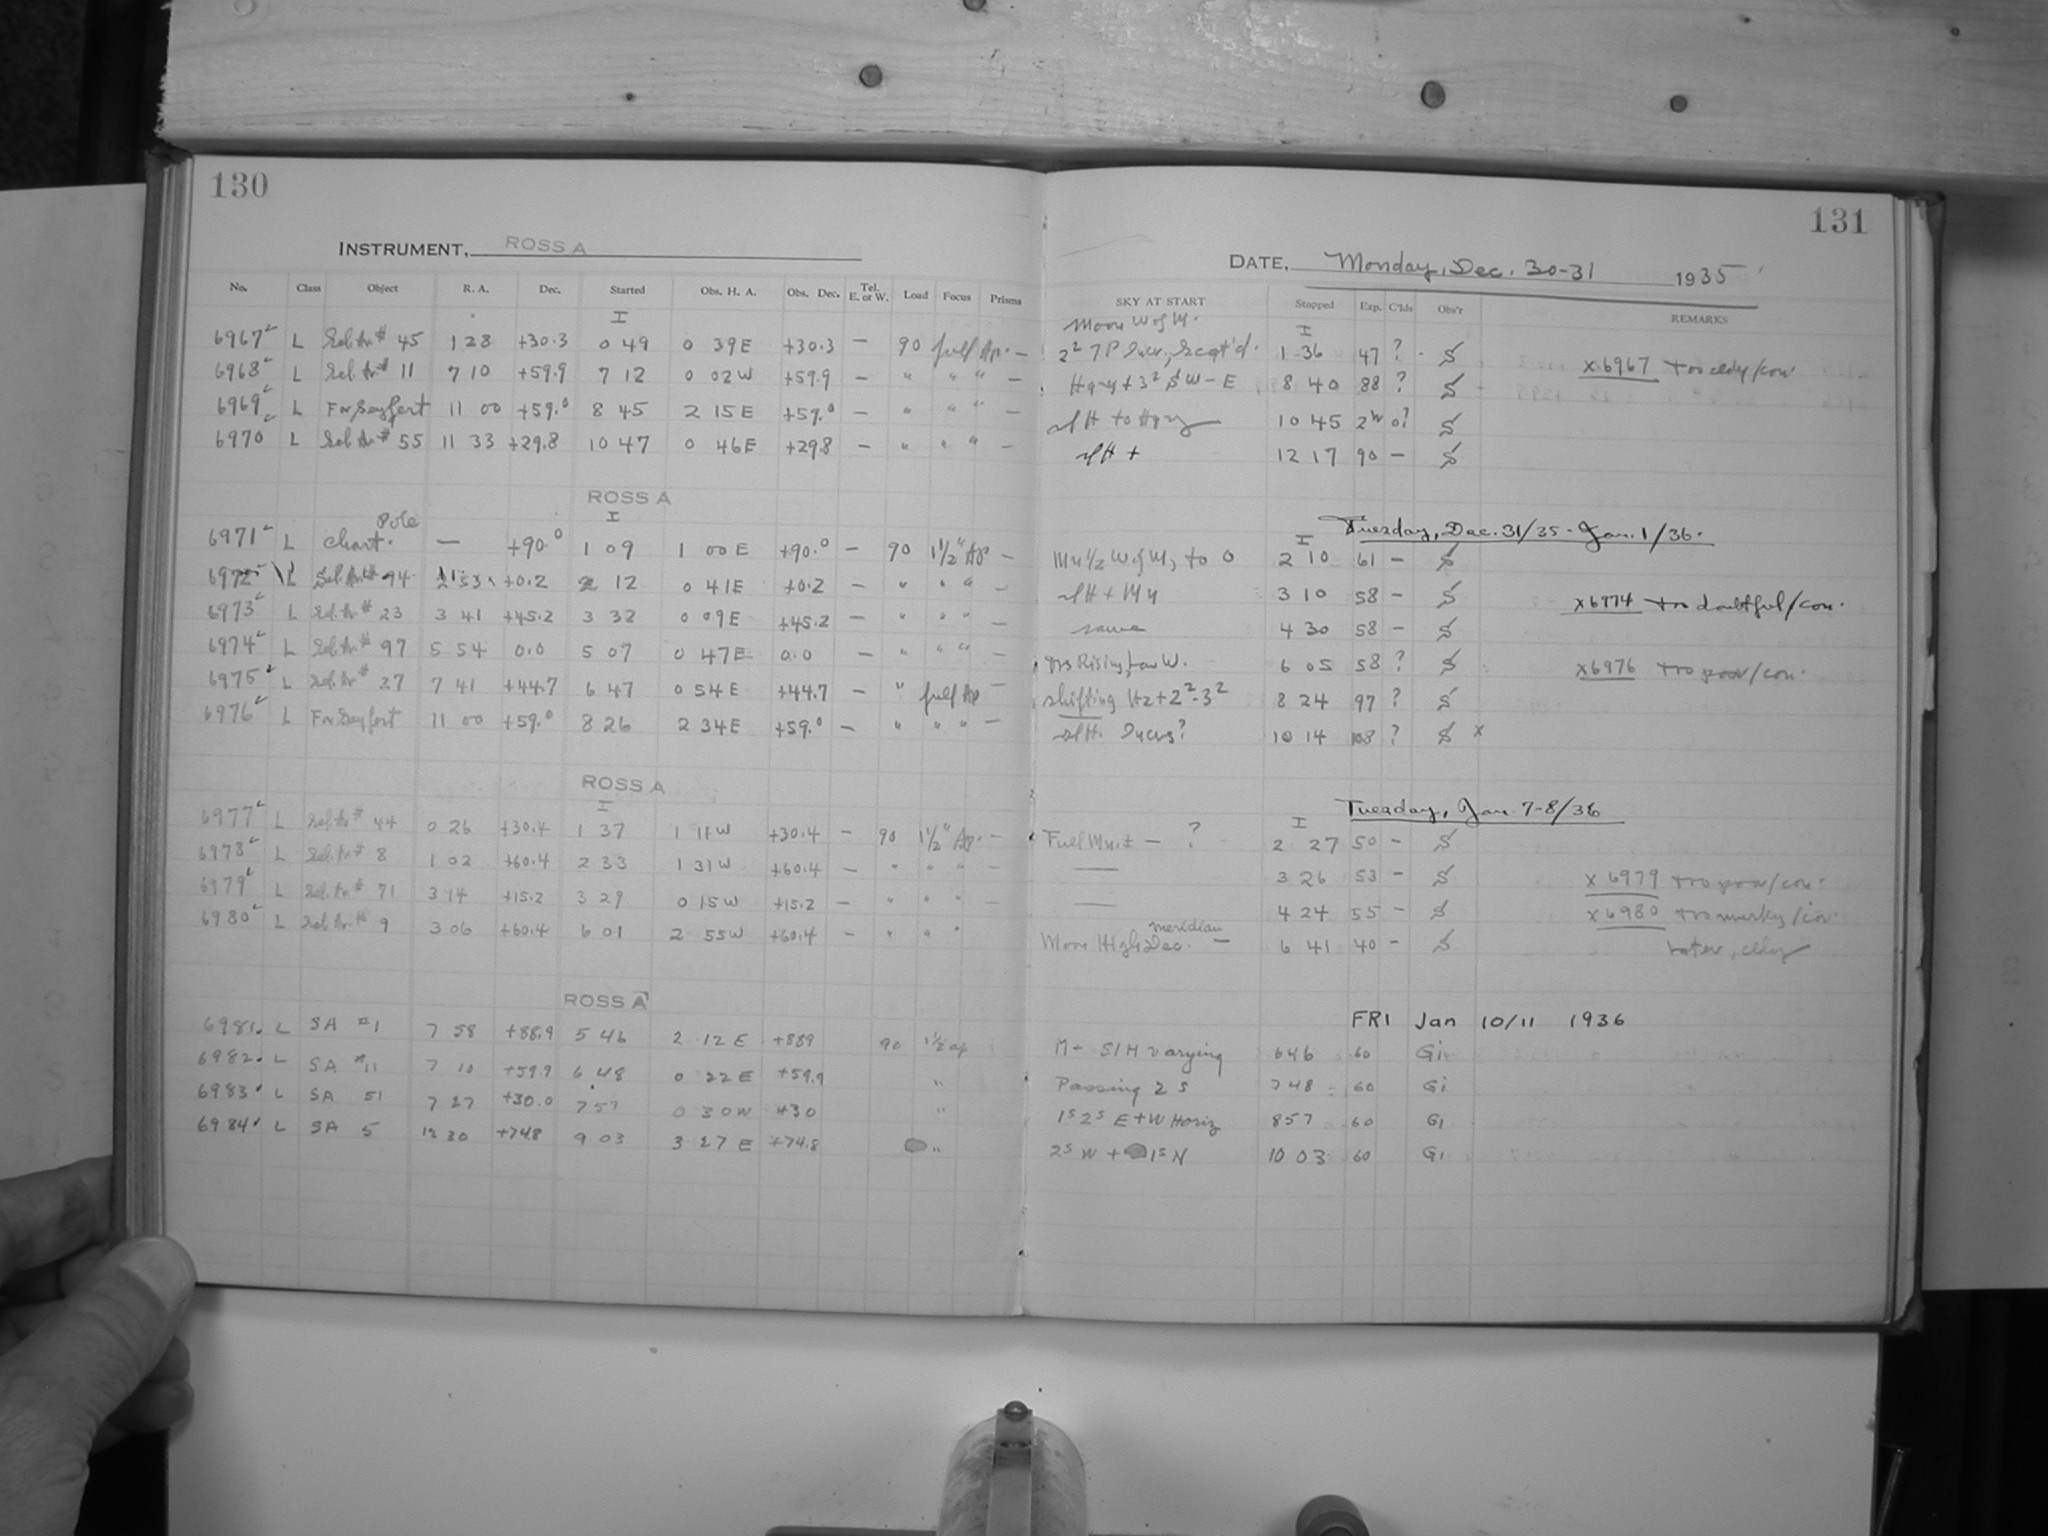 130
INSTRUMENT, ROSS A
No. Class Object R. A. Dec. Started Obs. H. A. Obs. Dec. Tel. E. or W. Load Focus Prisms
I
6967 L Sel. Ar # 45 1 28 +30.3 0 49 0 39E +30.3 — 90 full Ap. —
6968 L Sel. Ar # 11 7 10 +59.9 7 12 0 02W +59.9 — " " " —
6969 L For Seyfert 11 00 +59.0 8 45 2 15E +59.0 — " " " —
6970 L Sel. Ar # 55 11 33 +29.8 10 47 0 46E +29.8 — " " " —
ROSS A
I
Pole
6971 L Chart. — +90.0 1 09 1 00E +90.0 — 90 1½" Ap —
6972 L Sel. Ar # 94 2 53 +0.2 2 12 0 41E +0.2 — " " " —
6973 L Sel. Ar # 23 3 41 +45.2 3 32 0 09E +45.2 — " " " —
6974 L Sel. Ar # 97 5 54 0.0 5 07 0 47E 0.0 — " " " —
6975 L Sel. Ar # 27 7 41 +44.7 6 47 0 54E +44.7 — " full Ap —
6976 L For Seyfert 11 00 +59.0 8 26 2 34E +59.0 — " " " —
ROSS A
I
6977 L Sel. Ar # 44 0 26 +30.4 1 37 1 11W +30.4 — 90 1½" Ap. —
6978 L Sel. Ar # 8 1 02 +60.4 2 33 1 31W +60.4 — " " " —
6979 L Sel. Ar # 71 3 14 +15.2 3 29 0 15W +15.2 — " " " —
6980 L Sel. Ar # 9 3 06 +60.4 6 01 2 55W +60.4 — " " "
ROSS A
6981 L SA #1 7 58 +88.9 5 46 2 12 E +889 90 1½ ap
6982 L SA #11 7 10 +59.9 6 48 0 22 E +59.9 "
6983 L SA 51 7 27 +30.0 7 57 0 30W +30 "
6984 L SA 5 12 30 +74.8 9 03 3 27 E +74.8 "
131
DATE, Monday, Dec. 30-31 1935
SKY AT START Stopped Exp. C'lds Obs'r REMARKS
Moon W of M. I
1 36 47 ? S x6967 too cldy/con
8 40 88 ? S
10 45 S
slH + 12 17 90 — S
Tuesday, Dec. 31/35 - Jan. 1/36.
I
Mn ½ W of M, to 0 2 10 61 — S
slH + Mn 3 10 58 — S x6974 too doubtful/con.
same 4 30 58 — S
6 05 58 ? S x6976 too poor/con.
shifting Hz + 2²-3² 8 24 97 ? S
slH. 10 14 108 ? S x
Tuesday, Jan. 7-8/36
I
Full Mn. ± — ? 2 27 50 — S
— 3 26 53 — S x 6979 too poor/con.
— 4 24 55 — S x6980 too murky/con.
Moon High Dec. meridian — 6 41 40 — S later, cldy
FRI Jan 10/11 1936
M + SlH varying 646 60 Gi
Passing 2 s 748 60 Gi
1s 2s E + W Horiz 857 60 Gi
2s W + 1s N 10 03 60 Gi